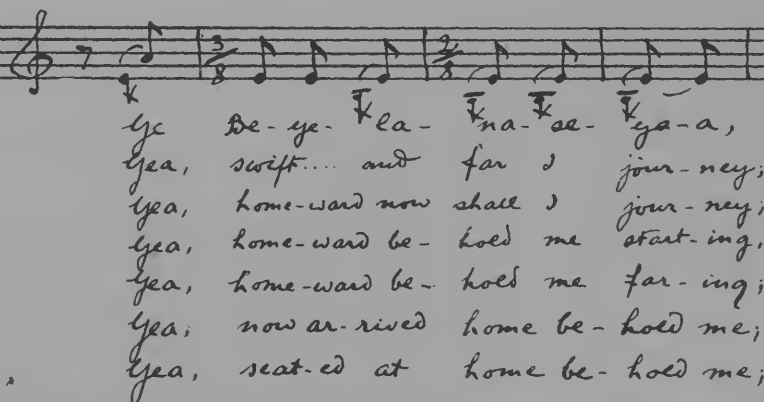 3/8 2/8
Ye Be-ye- la- na- se- ya-a,
Yea, swift.... and far I jour-ney;
Yea, home-ward now shall I jour-ney;
Yea, home-ward be- hold me start-ing,
Yea, home-ward be- hold me far-ing;
Yea, now ar-rived home be-hold me;
Yea, seat-ed at home be-hold me;